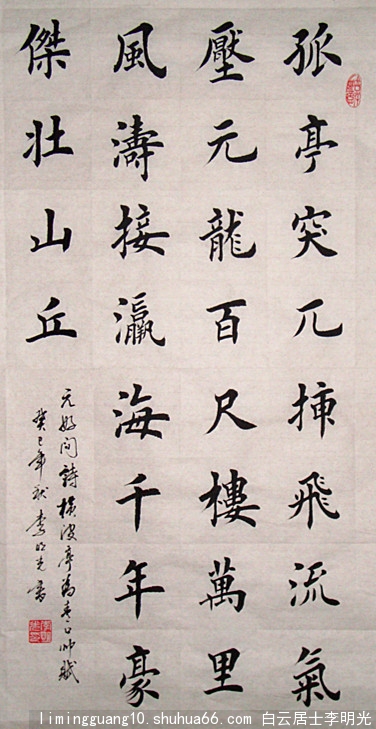 孤亭突兀揷飛流氣
壓元龍百尺樓萬里
風濤接瀛海千年豪
傑壯山丘
元好问詩橫波亭為青口帅賦
癸巳年秋李明光書
limingguang10.shuhua66.com/ © 白云居士李明光